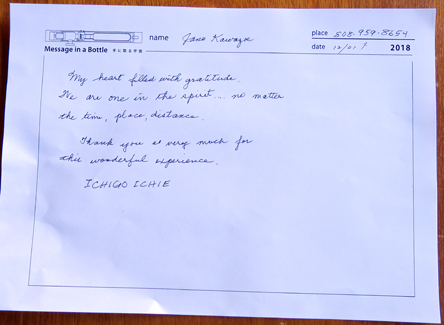 name Jane Kawazu
place 808-959-8654
Message in a Bottle
date 12/01/ 2018
My heart filled with gratitude.
We are one in the spirit... no matter
the tim, place, distance.
Thank you so very much for
this wonderful experience.
ICHIGO ICHIE